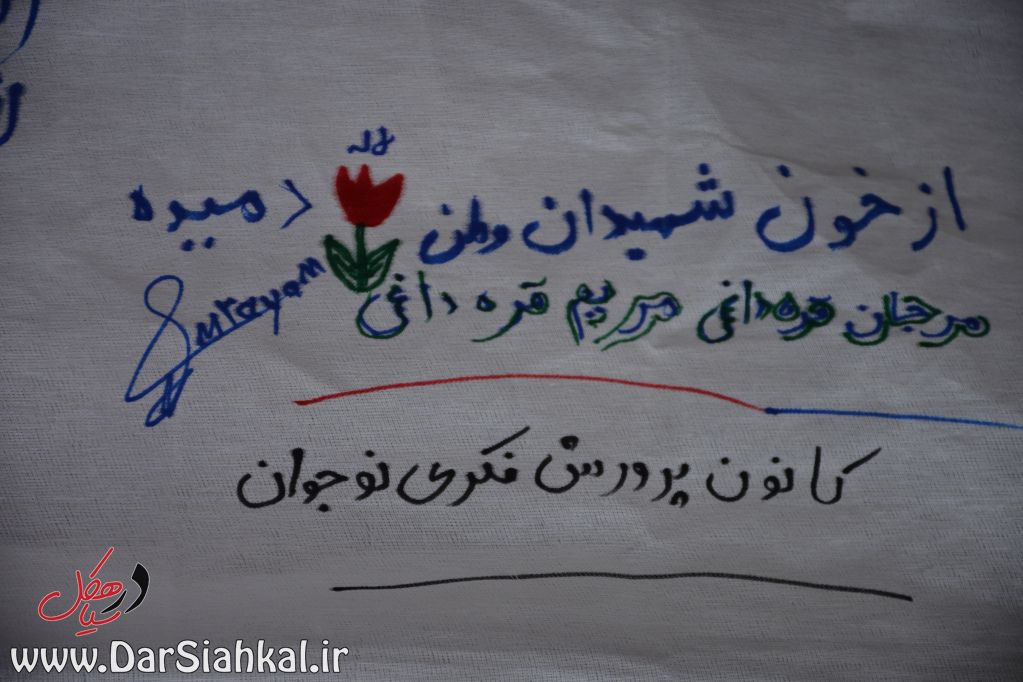 لاله
از خون شهیدان وطن دمیده
مرجان قره داغی مریم قره داغی
کانون پرورش فکری نوجوان
در سیاهکل
www.DarSiahkal.ir